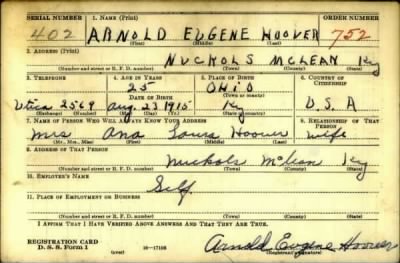 SERIAL NUMBER 1. NAME (Print) ORDER NUMBER
402 ARNOLD EUGENE HOOVER 752
(First) (Middle) (Last)
2. ADDRESS (Print)
NUCKOLS MCLEAN Ky
(Number and street or R. F. D. number) (Town) (County) (State)
3. TELEPHONE 4. AGE IN YEARS 5. PLACE OF BIRTH 6. COUNTRY OF CITIZENSHIP
25 OHIO
DATE OF BIRTH (Town or county)
Utica 2569 Aug. 23 1915 Ky U.S.A
(Exchange) (Number) (Mo.) (Day) (Yr.) (State or country)
7. NAME OF PERSON WHO WILL ALWAYS KNOW YOUR ADDRESS 8. RELATIONSHIP OF THAT PERSON
Mrs Ana Laura Hoover wife
(Mr., Mrs., Miss) (First) (Middle) (Last)
9. ADDRESS OF THAT PERSON
Nuckols McLean Ky
(Number and street or R. F. D. number) (Town) (County) (State)
10. EMPLOYER'S NAME
Self
11. PLACE OF EMPLOYMENT OR BUSINESS
(Number and street or R. F. D. number) (Town) (County) (State)
I AFFIRM THAT I HAVE VERIFIED ABOVE ANSWERS AND THAT THEY ARE TRUE.
REGISTRATION CARD
D. S. S. Form 1 (over) 16—17105 Arnold Eugene Hoover
(Registrant's signature)